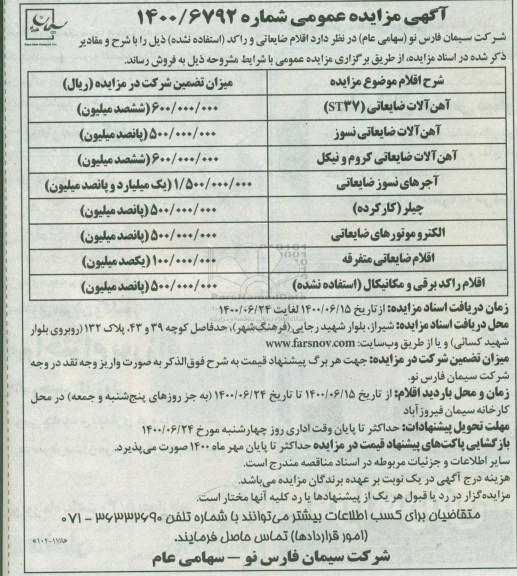 آگهی مزایده عمومی شماره ۱۴۰۰/۶۷۹۲
شرکت سیمان فارس نو (سهامی عام) در نظر دارد اقلام ضایعاتی و راکد (استفاده نشده) ذیل را با شرح و مقادیر
ذکر شده در اسناد مزایده، از طریق برگزاری مزایده عمومی با شرایط مشروحه ذیل به فروش رساند.
شرح اقلام موضوع مزایده | میزان تضمین شرکت در مزایده (ریال)
آهن‌آلات ضایعاتی (ST۳۷) | ۶۰۰/۰۰۰/۰۰۰ (ششصد میلیون)
آهن‌آلات ضایعاتی نسوز | ۵۰۰/۰۰۰/۰۰۰ (پانصد میلیون)
آهن‌آلات ضایعاتی کروم و نیکل | ۶۰۰/۰۰۰/۰۰۰ (ششصد میلیون)
آجرهای نسوز ضایعاتی | ۱/۵۰۰/۰۰۰/۰۰۰ (یک میلیارد و پانصد میلیون)
چیلر (کارکرده) | ۵۰۰/۰۰۰/۰۰۰ (پانصد میلیون)
الکتروموتورهای ضایعاتی | ۵۰۰/۰۰۰/۰۰۰ (پانصد میلیون)
اقلام ضایعاتی متفرقه | ۱۰۰/۰۰۰/۰۰۰ (یکصد میلیون)
اقلام راکد برقی و مکانیکال (استفاده نشده) | ۵۰۰/۰۰۰/۰۰۰ (پانصد میلیون)
زمان دریافت اسناد مزایده: از تاریخ ۱۴۰۰/۰۶/۱۵ لغایت ۱۴۰۰/۰۶/۲۴
محل دریافت اسناد مزایده: شیراز، بلوار شهید رجایی (فرهنگ‌شهر)، حدفاصل کوچه ۳۹ و ۴۳، پلاک ۱۳۲ (روبروی بلوار
شهید کسائی) و یا از طریق وب‌سایت: www.farsnov.com
میزان تضمین شرکت در مزایده: جهت هر برگ پیشنهاد قیمت به شرح فوق‌الذکر به صورت واریز وجه نقد در وجه
شرکت سیمان فارس نو.
زمان و محل بازدید اقلام: از تاریخ ۱۴۰۰/۰۶/۱۵ تا تاریخ ۱۴۰۰/۰۶/۲۴ (به جز روزهای پنج‌شنبه و جمعه) در محل
کارخانه سیمان فیروزآباد
مهلت تحویل پیشنهادات: حداکثر تا پایان وقت اداری روز چهارشنبه مورخ ۱۴۰۰/۰۶/۲۴
بازگشایی پاکت‌های پیشنهاد قیمت در مزایده حداکثر تا پایان مهر ماه ۱۴۰۰ صورت می‌پذیرد.
سایر اطلاعات و جزئیات مربوطه در اسناد مناقصه مندرج است.
هزینه درج آگهی در یک نوبت بر عهده برندگان مزایده می‌باشد.
مزایده‌گزار در رد یا قبول هر یک از پیشنهادها یا رد کلیه آنها مختار است.
متقاضیان برای کسب اطلاعات بیشتر می‌توانند با شماره تلفن ۳۶۳۳۲۶۹۰ - ۰۷۱
(امور قراردادها) تماس حاصل فرمایند.
شرکت سیمان فارس نو - سهامی عام